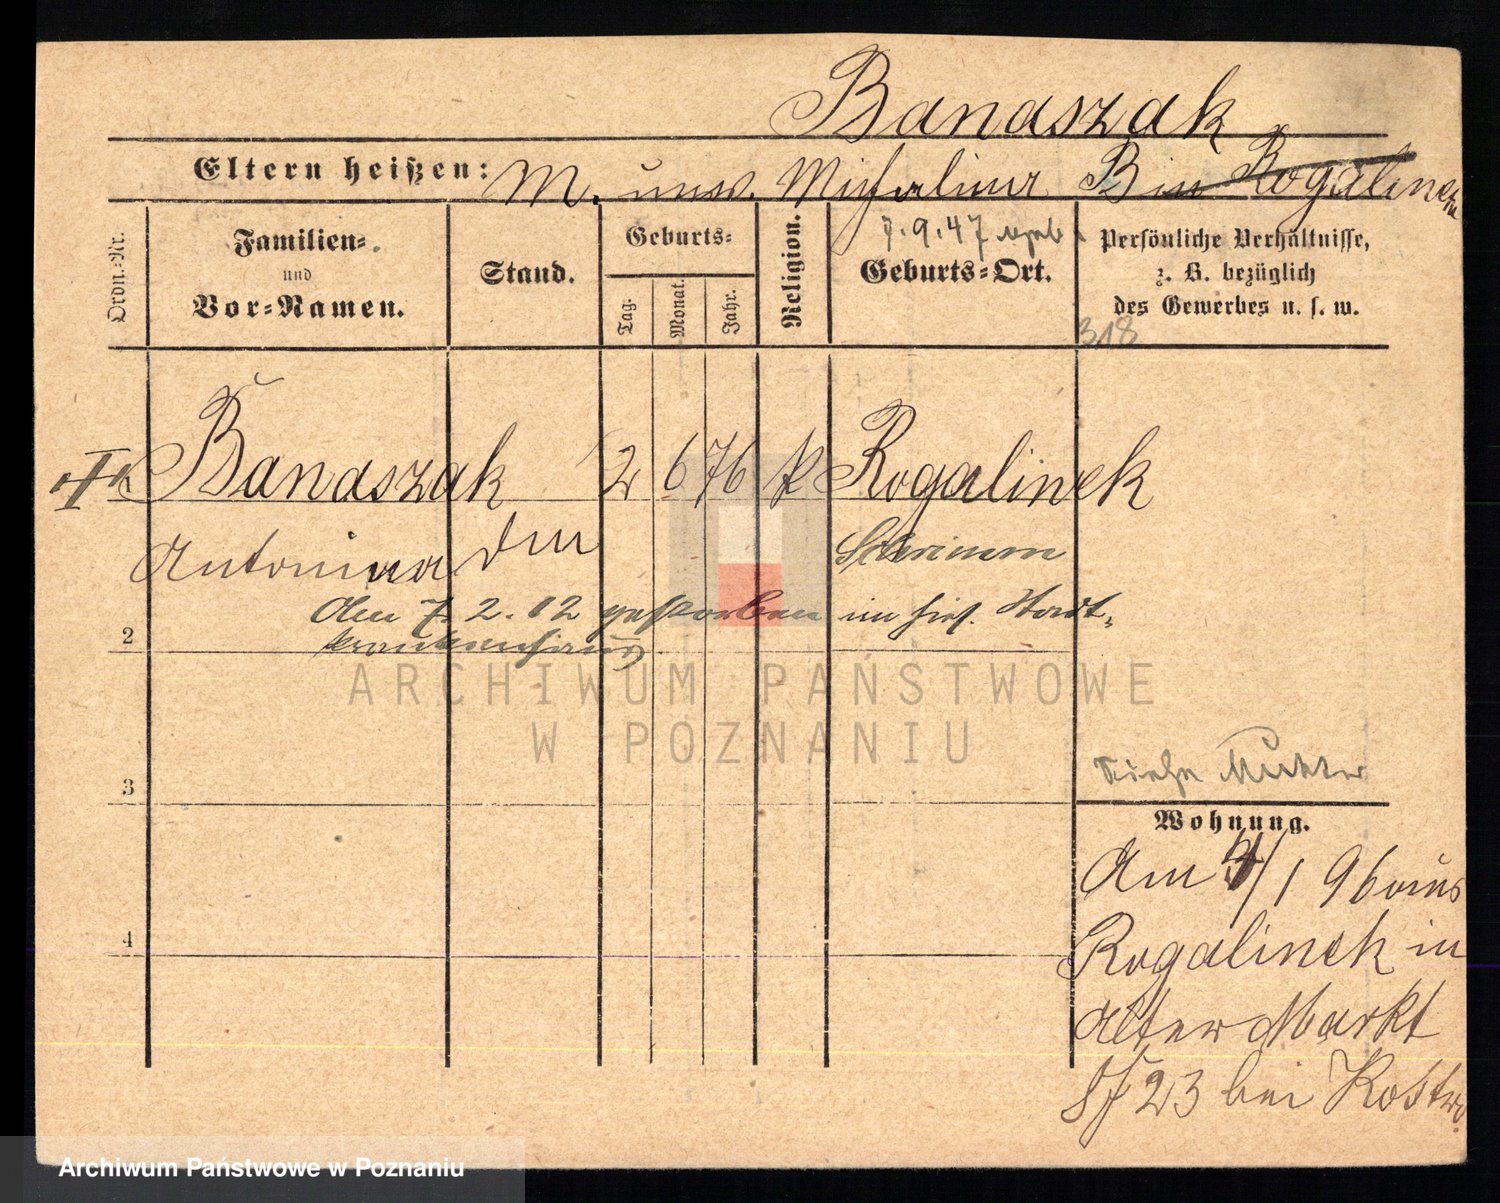 Banaszak
Eltern heißen: M. unv. Michalina B in Rogalinek
7.9.47
Ordn.-Nr.
Familien-
und
Vor-Namen.
Stand.
Geburts-
Tag.
Monat.
Jahr.
Religion.
Geburts-Ort.
Persönliche Verhältnisse,
z. B. bezüglich
des Gewerbes u. s. w.
318
1 Banaszak 2 6 76 k Rogalinek
Antonina Schrimm
Am 7. 2. 02 gestorben im hies. Stadt-
2 krankenhaus.
ARCHIWUM PAŃSTWOWE
W POZNANIU
Siehe Mutter
3
Wohnung.
Am 4/1 96 aus
Rogalinek in
4
Alter Markt
23 bei
Archiwum Państwowe w Poznaniu